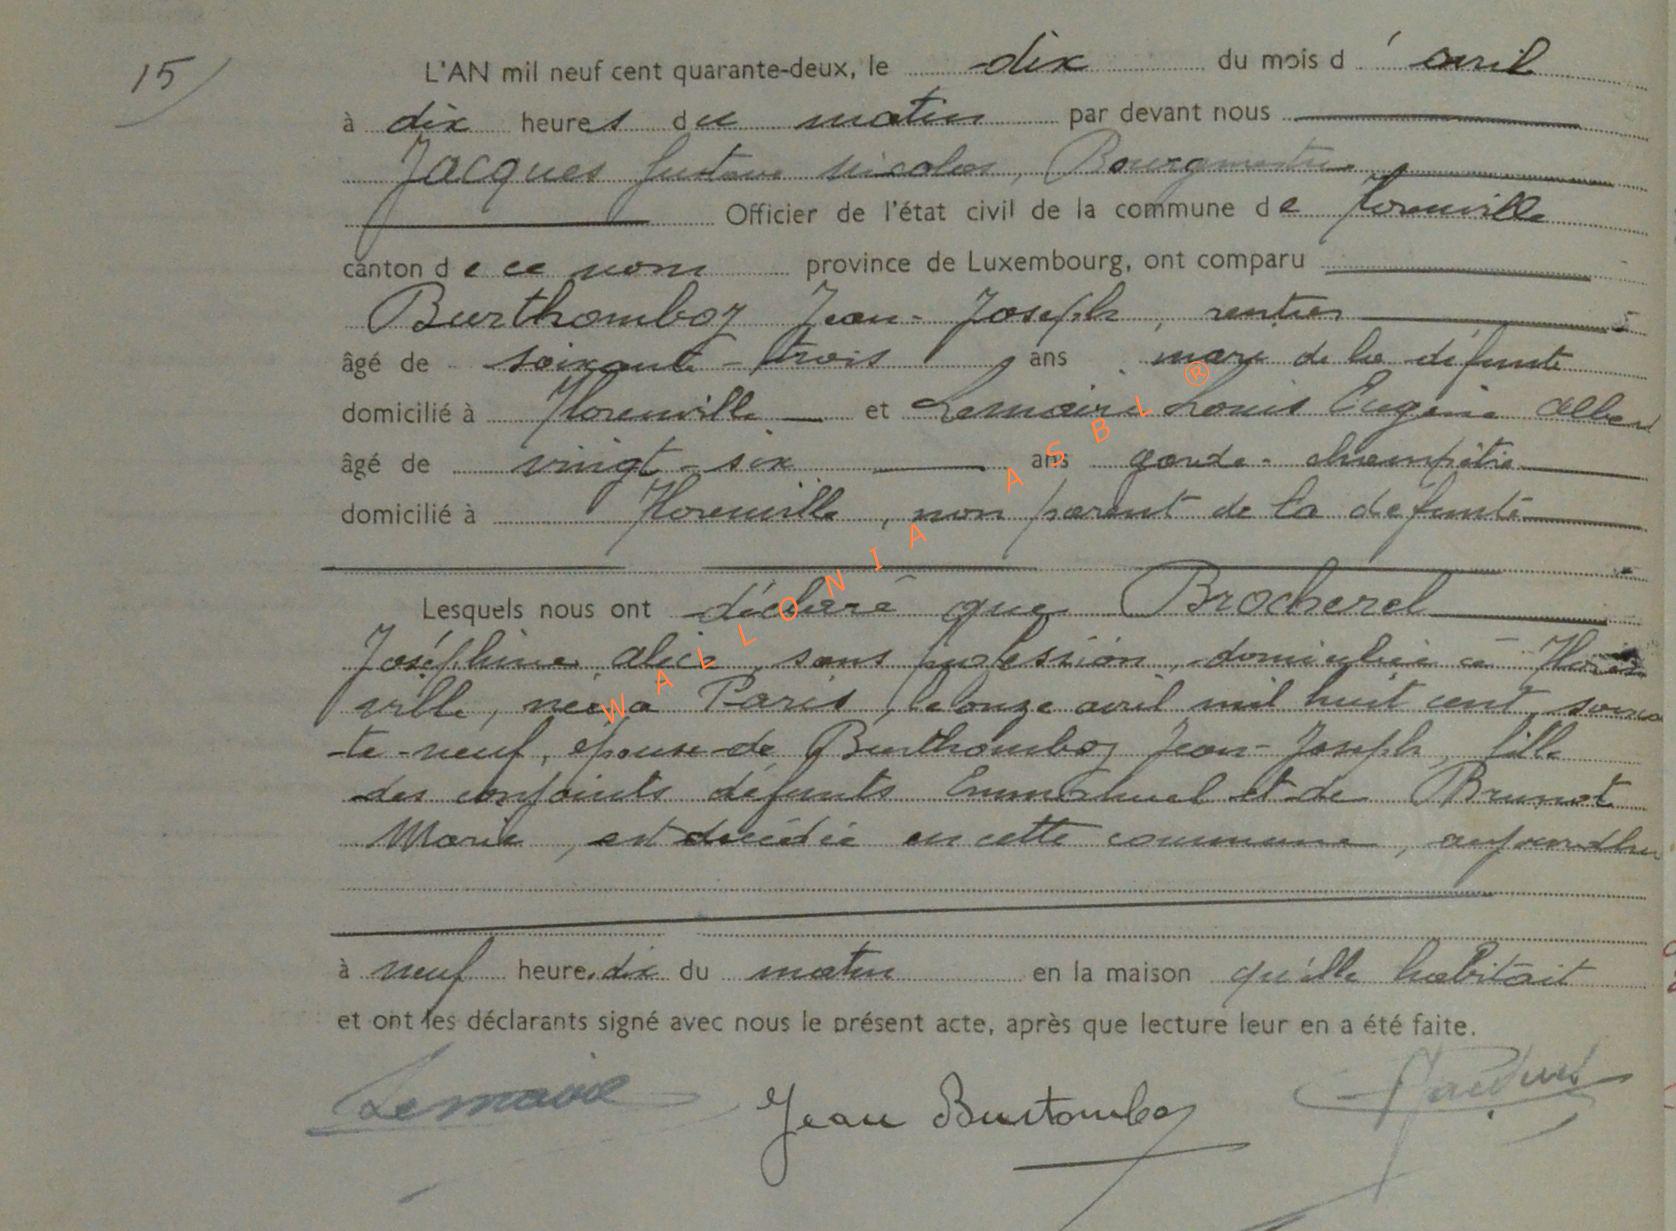 15
L'AN mil neuf cent quarante-deux, le dix du mois d'avril
à dix heures du matin par devant nous
Jacques Gustave Nicolas, Bourgmestre
Officier de l'état civil de la commune de Florenville
canton de ce nom province de Luxembourg, ont comparu
Burthomboz Jean-Joseph, rentier
âgé de soixante-trois ans mari de la défunte
domicilié à Florenville et Lemaire Louis Eugène Albert
âgé de vingt-six ans garde-champêtre
domicilié à Florenville, non parent de la défunte
Lesquels nous ont déclaré que Brocherel
Joséphine Alice, sans profession, domiciliée à Floren
ville, née à Paris, le onze avril mil huit cent soixan
te-neuf, épouse de Burthomboz Jean-Joseph, fille
des conjoints défunts Emmanuel et de Brunot
Marie, est décédée en cette commune, aujourd'hui
à neuf heure dix du matin en la maison qu'elle habitait
et ont les déclarants signé avec nous le présent acte, après que lecture leur en a été faite.
Lemaire Jean Burtomboz GJacques
WALLONIA ASBL ®